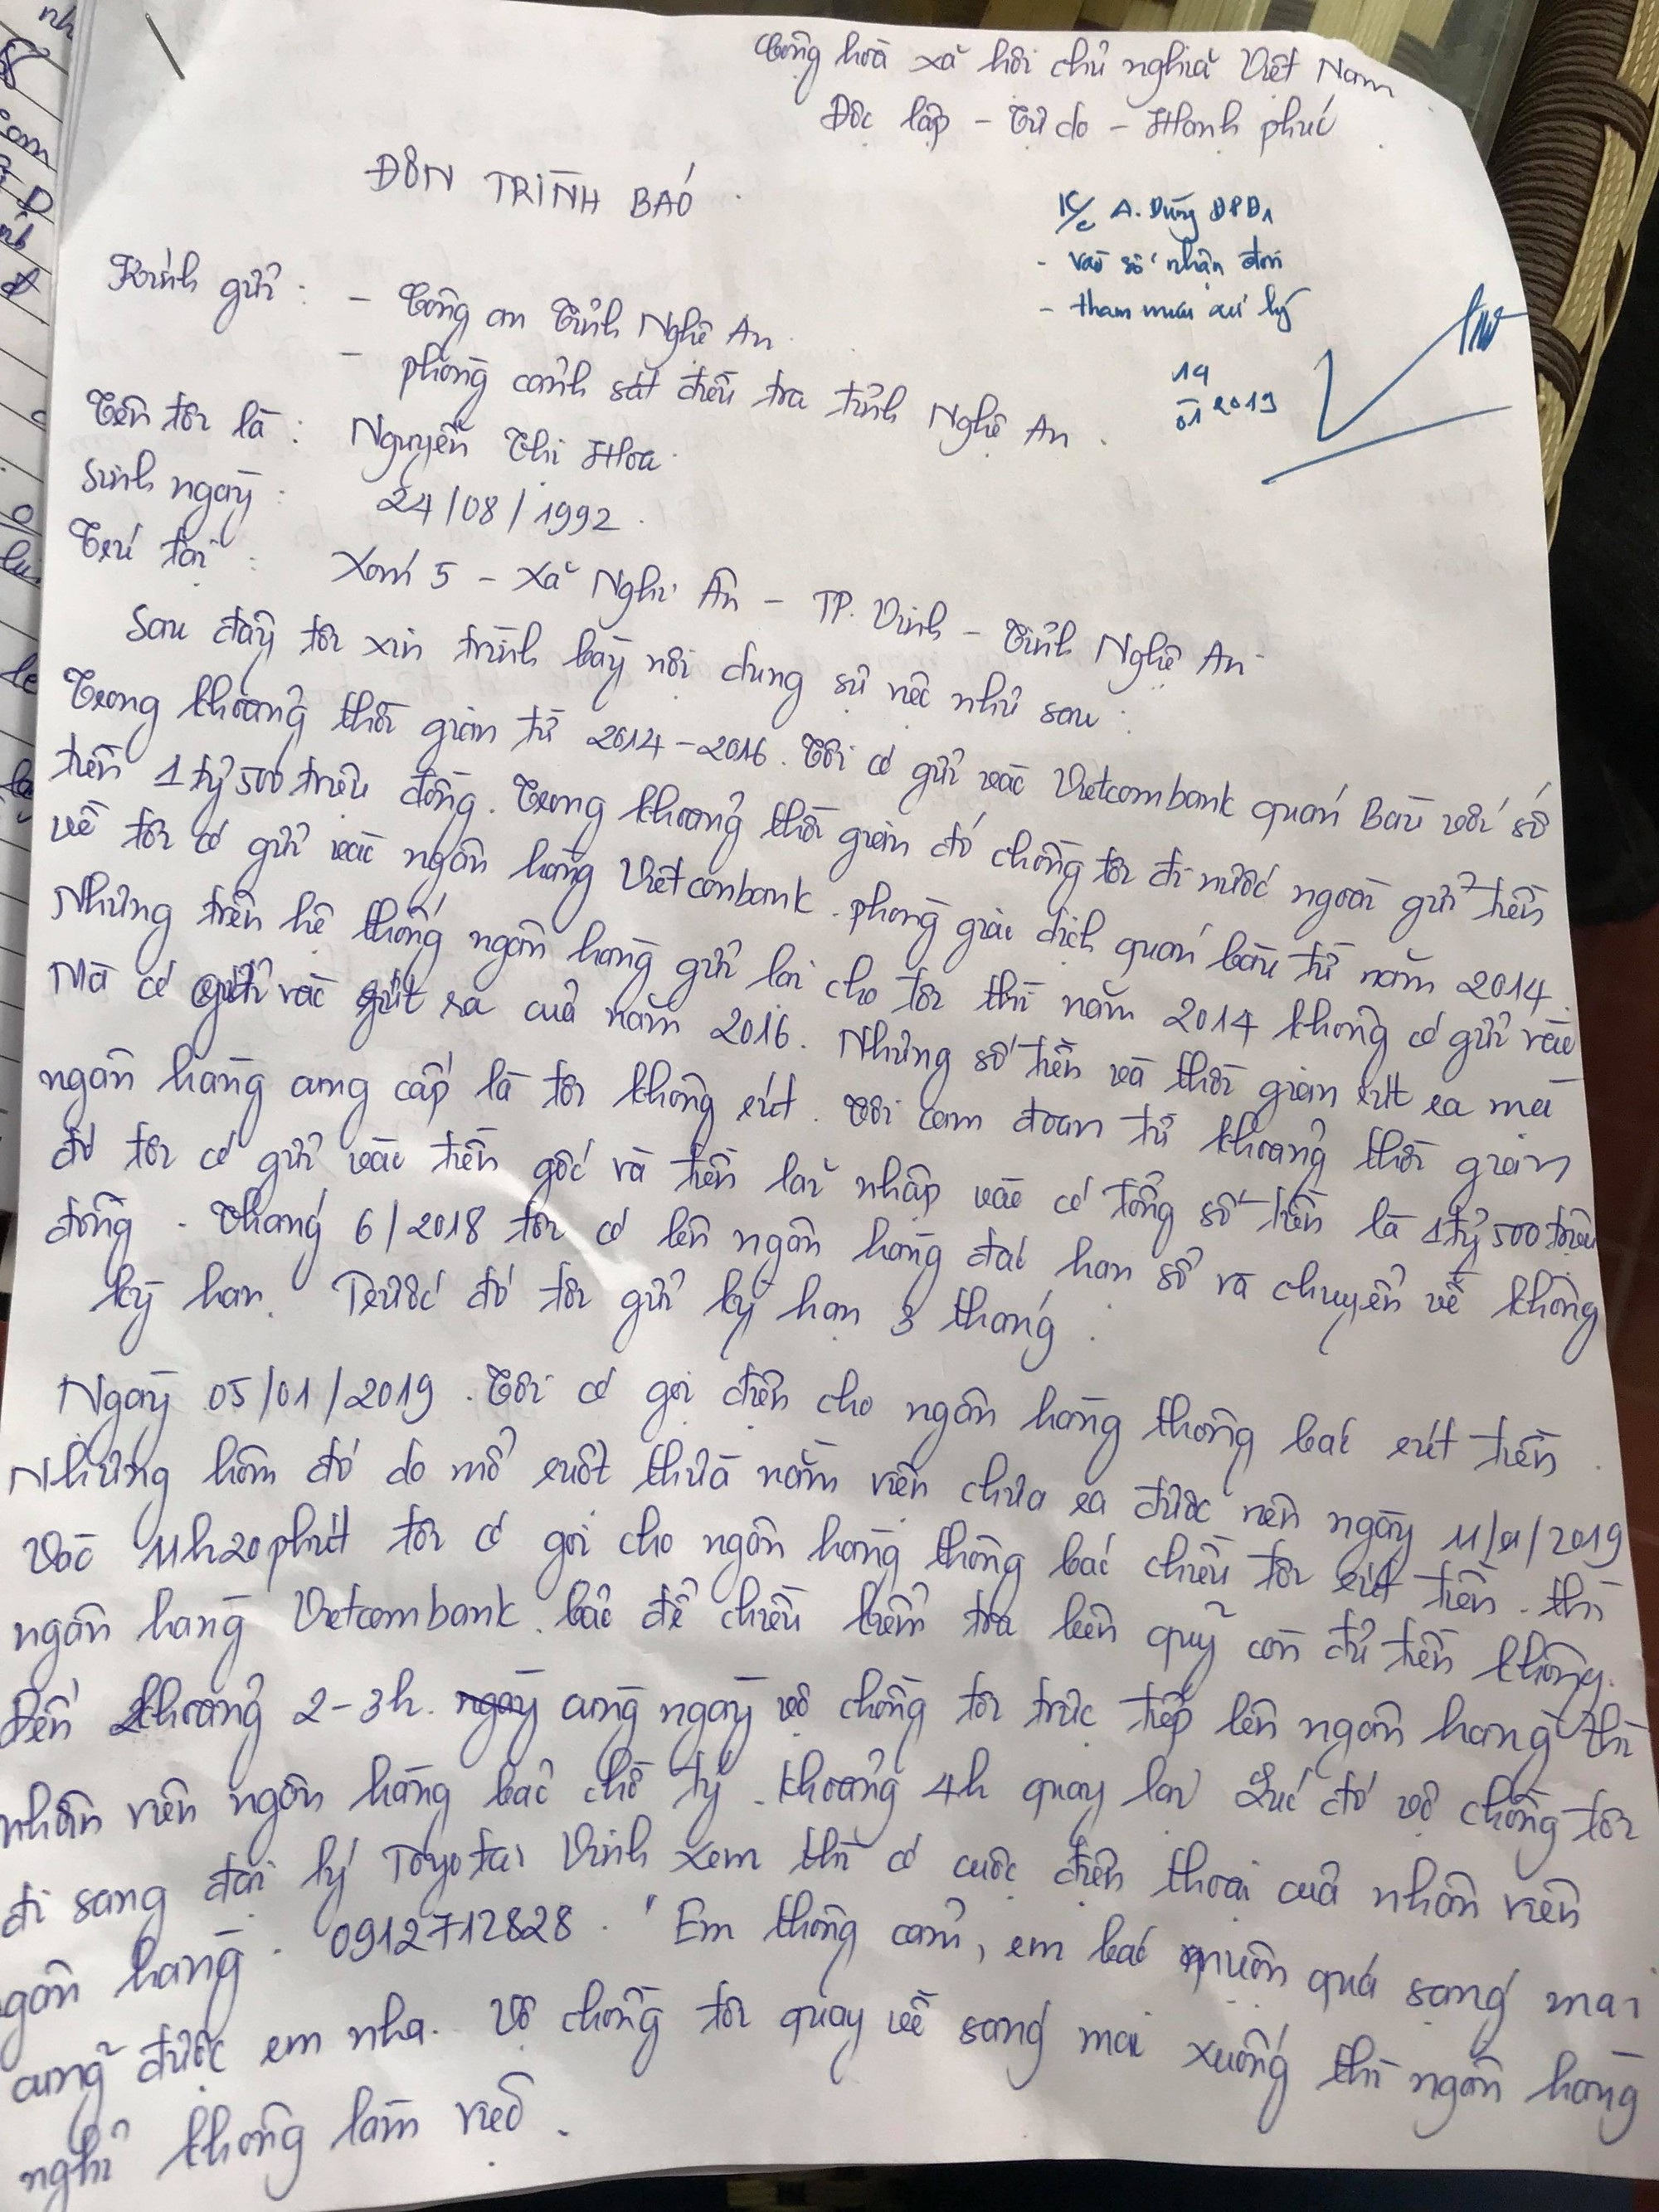 Cộng hoà xã hội chủ nghĩa Việt Nam
Độc lập - Tự do - Hạnh phúc
ĐƠN TRÌNH BÁO
K/c A. Dũng ĐPĐ1
- vào sổ nhận đơn
- tham mưu xử lý
14
01 2019
Kính gửi: - Công an Tỉnh Nghệ An.
- phòng cảnh sát điều tra tỉnh Nghệ An.
Tên tôi là: Nguyễn Thị Hoa.
Sinh ngày: 24/08/1992.
Trú tại: Xóm 5 - Xã Nghi Ân - TP. Vinh - Tỉnh Nghệ An.
Sau đây tôi xin trình bày nội dung sự việc như sau:
Trong khoảng thời gian từ 2014-2016. Tôi có gửi vào Vietcombank quán Bàu với số
tiền 1 tỷ 500 triệu đồng. Trong khoảng thời gian đó chồng tôi đi nước ngoài gửi tiền
về tôi có gửi vào ngân hàng Vietcombank. phòng giao dịch quán bàu từ năm 2014.
Nhưng trên hệ thống ngân hàng gửi lại cho tôi thì năm 2014 không có gửi vào
Mà có gửi vào rút ra của năm 2016. Nhưng số tiền và thời gian rút ra mà
ngân hàng cung cấp là tôi không rút. Tôi cam đoan từ khoảng thời gian
đó tôi có gửi vào tiền gốc và tiền lãi nhập vào có tổng số tiền là 1 tỷ 500 triệu
đồng. Tháng 6/2018 tôi có lên ngân hàng đáo hạn sổ và chuyển về không
kỳ hạn. Trước đó tôi gửi kỳ hạn 3 tháng.
Ngày 05/01/2019. Tôi có gọi điện cho ngân hàng thông báo rút tiền.
Nhưng hôm đó do mổ ruột thừa nằm viện chưa ra được nên ngày 11/01/2019
Vào 11h20 phút tôi có gọi cho ngân hàng thông báo chiều tôi rút tiền. thì
ngân hàng Vietcombank. bảo để chiều kiểm tra bên quỹ còn đủ tiền không.
Đến khoảng 2-3h. cùng ngày vợ chồng tôi trực tiếp lên ngân hàng thì
nhân viên ngân hàng bảo chờ tý. khoảng 4h quay lại Lúc đó vợ chồng tôi
đi sang đại lý Toyota Vinh xem thì có cuộc điện thoại của nhân viên
ngân hàng. 0912712828. "Em thông cảm, em báo muộn quá sáng mai
cũng được em nha. Vợ chồng tôi quay về sáng mai xuống thì ngân hàng
nghỉ không làm việc.